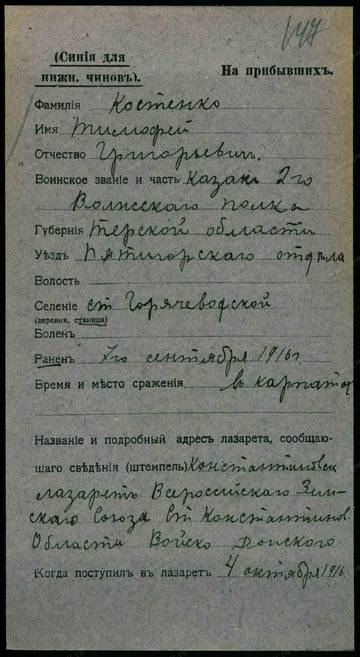 147
(Синія для
нижн. чиновъ).
На прибывшихъ.
Фамилія Костенко
Имя Тимофей
Отчество Григорьевич.
Воинское званіе и часть Казак 2го
Волгскаго полка
Губернія Терской области
Уѣздъ Пятигорскаго отдѣла
Волость
Селеніе ст Горячеводской
(деревня, станица)
Боленъ
Раненъ 7го сентября 1916 г.
Время и мѣсто сраженія в карпатах
Названіе и подробный адресъ лазарета, сообщаю-
щаго свѣдѣнія (штемпель) Константиновск
лазаретъ Всероссійскаго Зем-
скаго Союза Ст Константинов.
Области Войско Донского
Когда поступилъ въ лазаретъ 4 октября 1916